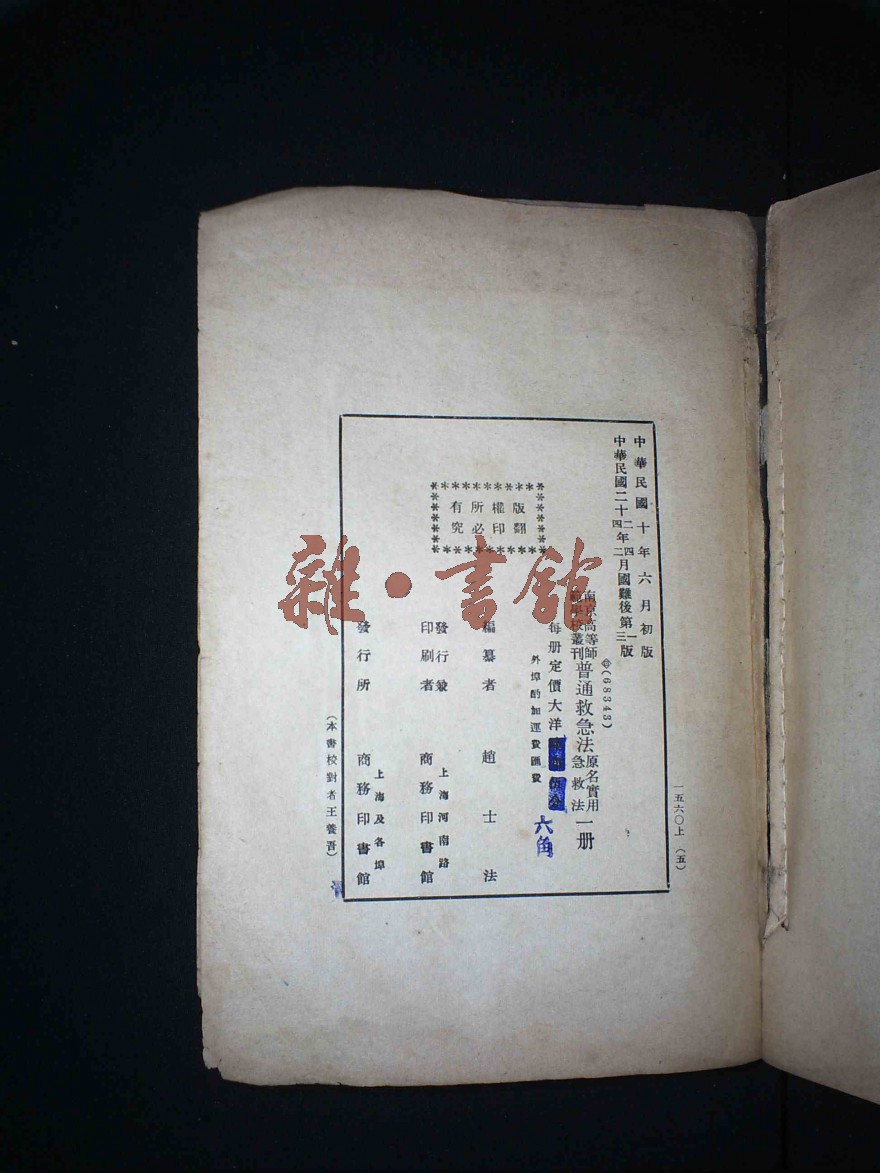 一五六〇上（五）
中華民國十年六月初版
中華民國二十二年四月國難後第一版
四年二 三
⊕(68343)
南京高等師
範學校叢刊
普通救急法
原名實用
急救法
一册
每册定價大洋
六角
外埠酌加運費匯費
版權所有
翻印必究
編纂者 趙士法
發行兼
印刷者
上海河南路
商務印書館
發行所
上海及各埠
商務印書館
（本書校對者王養吾）
雜·書館